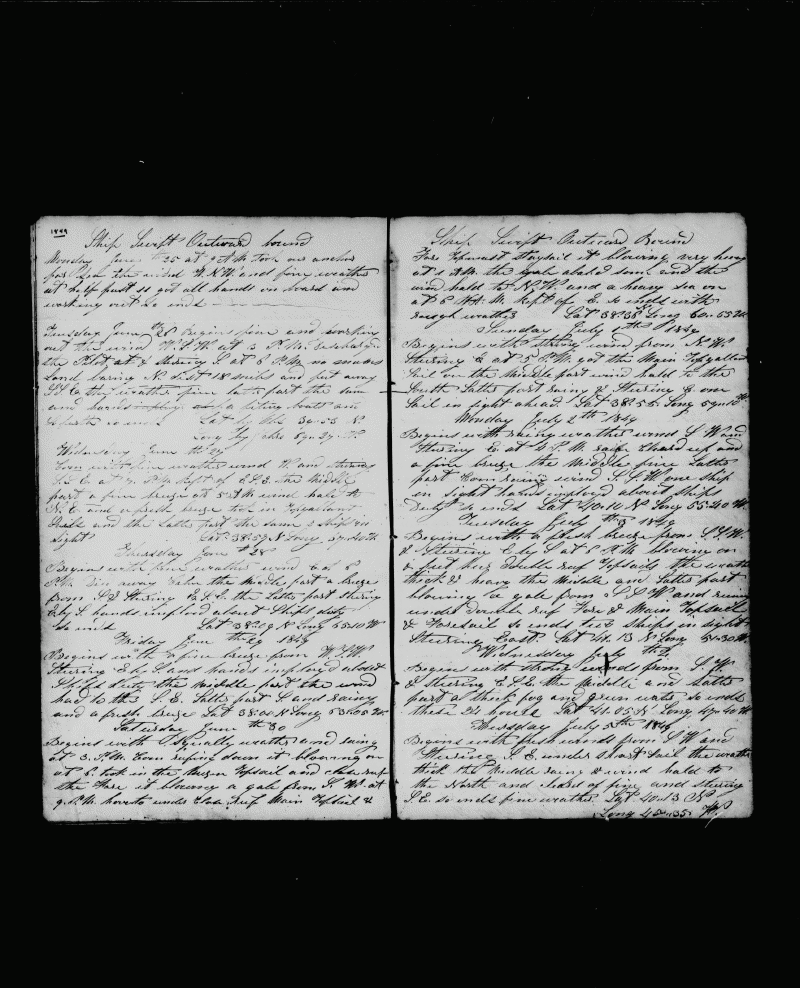 1849
Ship Swift Outward bound
Monday June 25 at 9 A M Took our anchor
for the wind W.N.W. and fine weather
at half past 11 got all hands on board and
working out so ends
Tuesday June 26 Begins fine and working
out the wind W.S.W. at 3 P.M. discharged
the Pilot at 4 steering S at 8 P.M. no mans
Land baring N. dist 18 miles and put away
S.S.E. Day weather fine latter part the same
and hands fiting boats and
so ends Lat by Obs 39..55 N.
Long by Chro 69..29 W
Wednesday June the 27
with fine weather wind W. and steering
S.S.E. at 7. P.M. Kept of E.S.E. the Middle
part a fine breeze at 5 A M wind hald to
N.E. and a fresh breeze took in Topgallant
Sails and the Latter part the same 2 Ships in
Sight Lat 38:59 N Long
Thursday June th 28
Begins with fine weather wind at 8
P.M. Died away Calm the Middle part a breeze
from S & Steering E.S.E. the Latter part steering
E by S. hands imployd about Ships duty
So ends Lat 38:09 N Long 65:10 W
Friday June the 29 1849
Begins with a fine breeze from W.S.W.
Steering E by S. and hands imployed about
Ships duty the middle part the wind
had to the S.E. Latter part S and rainy
and a fresh breeze Lat 38:00 N Long
Saturday June th 30
Begins with Squally weather and raing
at 3. P.M. reefing down it blowing on
at 6. took in the Mizen Topsail and close reeft
the Fore it blowing a gale from S. W. at
9. P.M. hoveto under Close Reef Main Topsail &
Ship Swift Outward Bound
Fore Topmast staysail it blowing very heavy
at 1 A.M. the gale abated some and the
wind hald to N.W. and a heavy sea on
at 6 A.M. Kept of E. so ends with
rough weather Lat 38:38 Long 60..55 W.
Sunday July 1th 1849
Begins with strong wind from N.W.
Steering E at 5 P.M. got the Main Topgallant
Sail on the Middle part wind hald to the
South Latter part rainy & Steering E one
Sail in sight ahead. Lat 38:56. Long 59..10 W.
Monday July 2th 1849
Begins with rainy weather wind S. W and
Steering E. at 4 P.M. cleard up and
a fine breeze the Middle fine Latter
part wind S.S.W. one Ship
in sight hands imployd about Ships
Duty so ends Lat 40..10 N Long 55..40 W.
Tuesday July th 3 1849
Begins with a fresh breeze from S.S.W.
& Steering E by S at 8 P.M. blowing on
& put her Double reef Topsails the weather
thick & heavy the Middle and Latter part
blowing a gale from S.S.W and runing
under Double reef Fore & Main Topsails
& Foresail so ends two ships in sight
Steering East. Lat 41..13 N Long 51..30 W
Wednesday July th 4
Begins with strong winds from S.W.
& steering E.S.E. the Middle and Latter
part a thick fog and green water so ends
these 24 hours Lat 41..05 N Long 47..40 W
Thursday July 5th 1849
Begins with fresh winds from S.W. and
Steering S.E. under short sail the weather
thick the Middle rainy & wind hald to
the North and cleard of fine and steering
S.E. so ends fine weather. Lat 40..13 N.
Long 43..35 W.